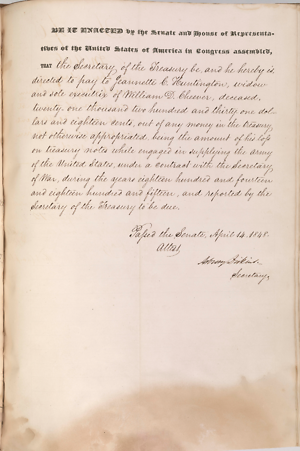 BE IT ENACTED by the Senate and House of Representa-
tives of the United States of America in Congress assembled,
THAT the Secretary of the Treasury be, and he hereby is
directed to pay to Jeannette C. Huntington, widow
and sole executrix of William D. Cheever, deceased,
twenty-one thousand two hundred and thirty one dol-
lars and eighteen cents, out of any money in the treasury
not otherwise appropriated, being the amount of his loss
on treasury notes while engaged in supplying the army
of the United States, under a contract with the Secretary
of War, during the years eighteen hundred and fourteen
and eighteen hundred and fifteen, and reported by the
Secretary of the Treasury to be due.
Passed the Senate, April 14, 1848.
Attest,
Asbury Dickins
Secretary